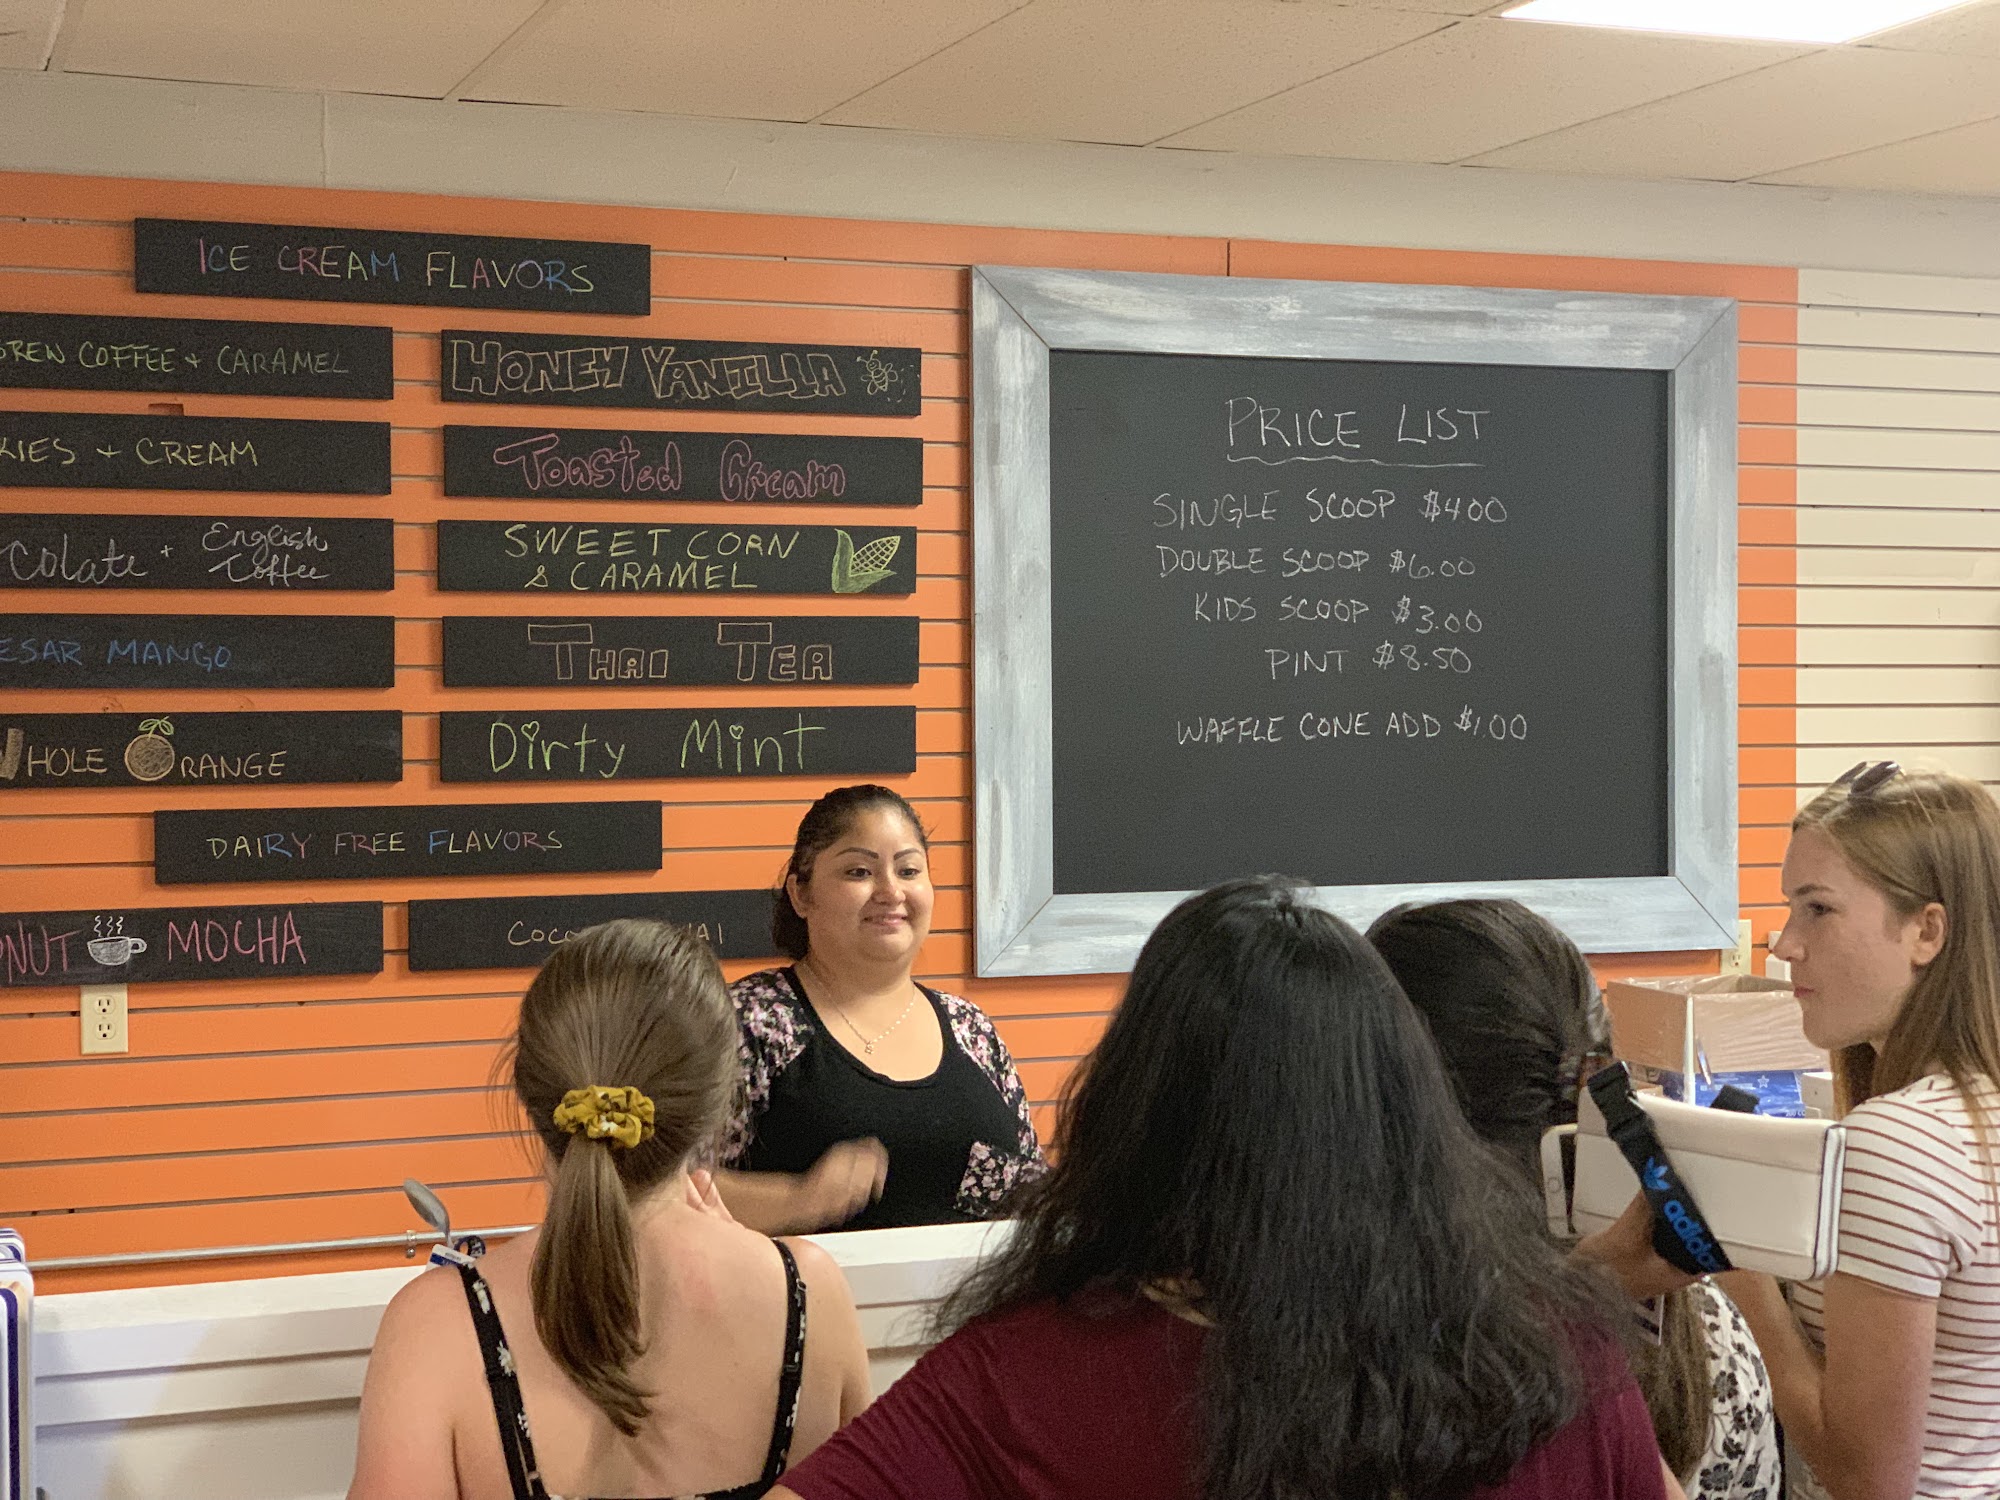 ICE CREAM FLAVORS
COFFEE + CARAMEL
+ CREAM
English
Coffee
MANGO
WHOLE ORANGE
HONEY VANILLA
Toasted Cream
SWEET CORN
& CARAMEL
THAI TEA
Dirty Mint
DAIRY FREE FLAVORS
MOCHA
PRICE LIST
SINGLE SCOOP $4.00
DOUBLE SCOOP $6.00
KIDS SCOOP $3.00
PINT $8.50
WAFFLE CONE ADD $1.00
adidas